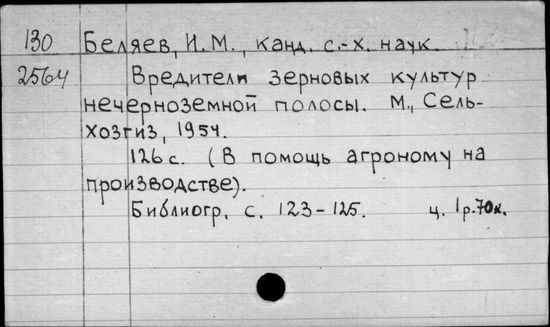 130 Беляев, И. М., канд. с.-х. наук.
2564 Вредители зерновых культур
нечерноземной полосы. М., Сель-
хозгиз, 1954.
126 с. (В помощь агроному на
производстве).
Библиогр. с. 123-125. ц. 1р.70к.